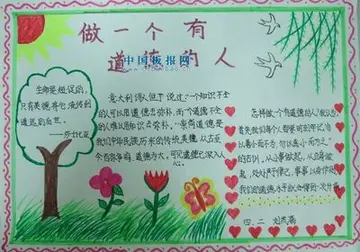 做一个有
道德的人
中国板报网
生命是短促的，
只有美德将它流传到
遥远的后世。
——莎士比亚
意大利诗人但丁说过："一个知识不全
的人可以用道德去弥补，而一个道德不全
的人难以用知识去弥补。"崇尚道德是
我们中华民族历来的传统美德，从古至
今百余争鸣，道德为大，可见道德已深入人
心。
怎样做一个有道德的人？我认为
首先我们每个人都要时时牢记"勿
以善小而不为，勿以恶小而为之"
的古训，从小事做起，从自身做
起，
我们的道德水平就会得到一次升
四、二